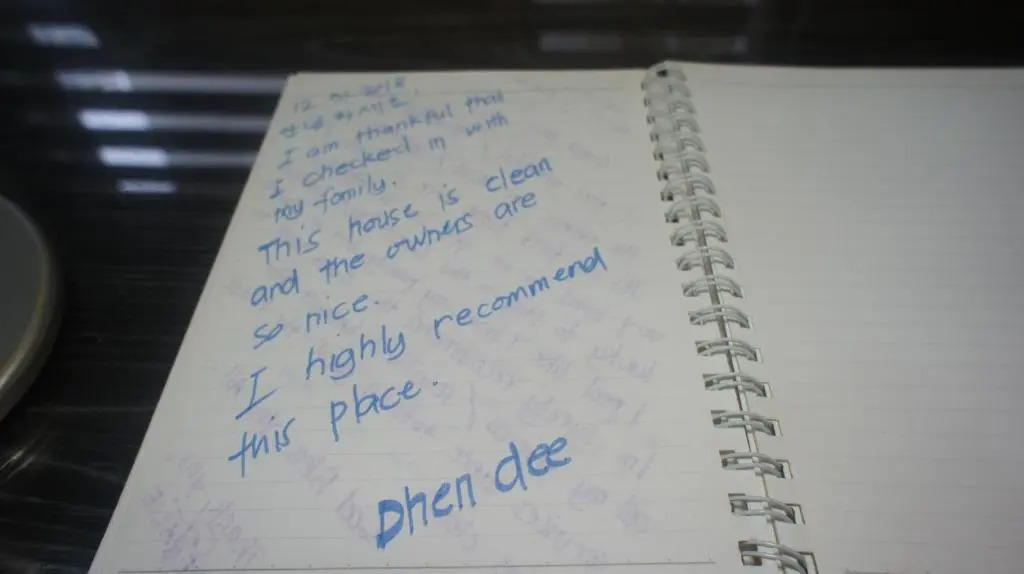 I am thankful that
I checked in with
my family.
This house is clean
and the owners are
so nice.
I highly recommend
this place.
Dhen dee